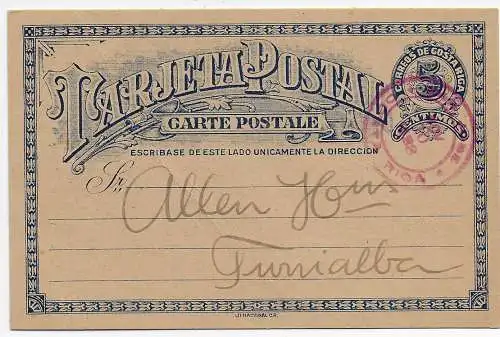 CORREOS DE COSTA RICA
2
CENTIMOS
TARJETA POSTAL
CARTE POSTALE
ESCRIBASE DE ESTE LADO UNICAMENTE LA DIRECCION
RICA
Sr.
Allen
Turrialba